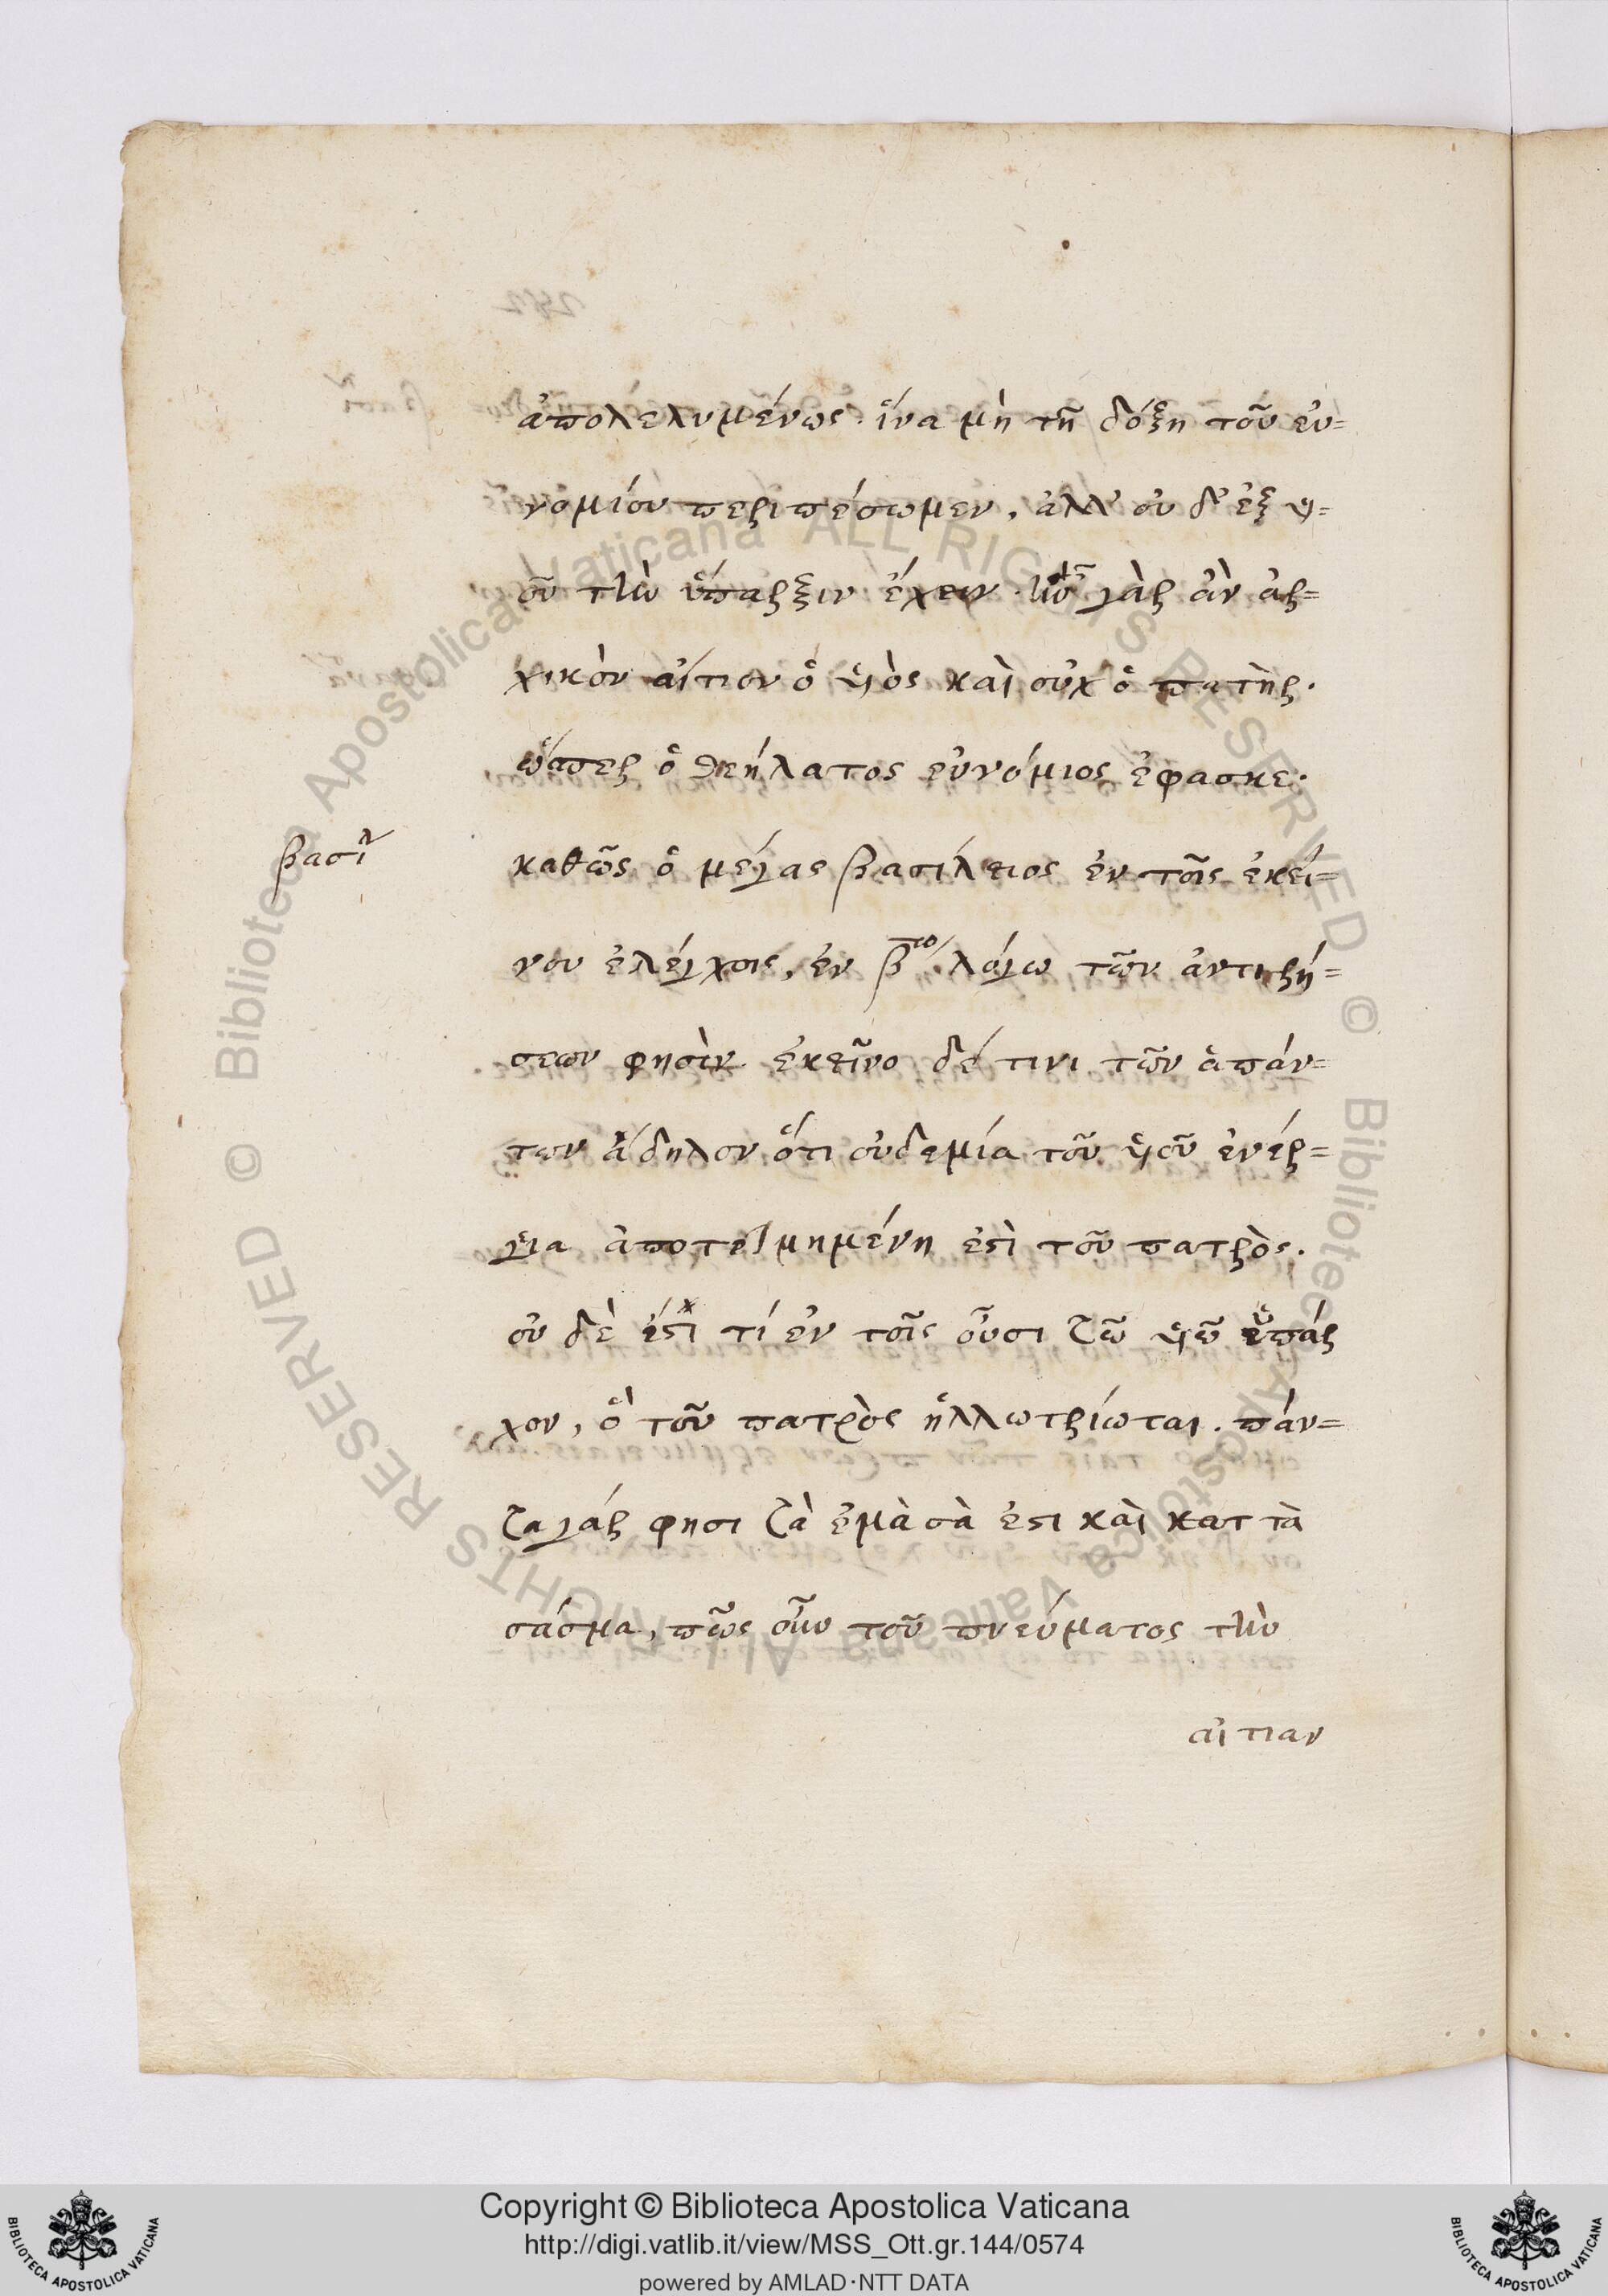 ἀπολελυμένως. ἵνα μὴ τῆ δόξη τοῦ εὐ=
νομίου περιπέσωμεν, ἀλλ' οὐ δ' ἐξ υἱ=
οῦ τὴν ὕπαρξιν ἔχειν. ἦν γὰρ ἂν ἀρ=
χικὸν αἴτιον ὁ υἱὸς καὶ οὐχ ὁ πατὴρ.
ὥσπερ ὁ θεήλατος εὐνόμιος ἐφασκε.
βασιλ
καθῶς ὁ μέγας βασίλειος ἐν τοῖς ἐκεί=
νου ἐλέγχοις, ἐν βῳ. λόγω τῶν ἀντιρή=
σεων φησὶν ἐκεῖνο δέ τινι τῶν ἁπάν=
των ἄδηλον ὅτι οὐδεμία τοῦ υἱοῦ ἐνέρ=
γεια ἀποτετμημένη ἐστὶ τοῦ πατρὸς.
οὐ δὲ ἔστι τί ἐν τοῖς οὖσι τῶ υἱῶ ὑπάρ
χον, ὃ τοῦ πατρὸς ἠλλωτρίωται. πάν=
τα γάρ φησι τὰ ἐμὰ σὰ ἐστι καὶ κατ τὰ
σάἐμα, πῶς οὖν τοῦ πνεύματος τὴν
αἰτιαν
Copyright © Biblioteca Apostolica Vaticana
http://digi.vatlib.it/view/MSS_Ott.gr.144/0574
powered by AMLAD·NTT DATA
BIBLIOTECA APOSTOLICA VATICANA
BIBLIOTECA APOSTOLICA VATICANA
© Biblioteca Apostolica Vaticana ALL RIGHTS RESERVED
© Biblioteca Apostolica Vaticana ALL RIGHTS RESERVED